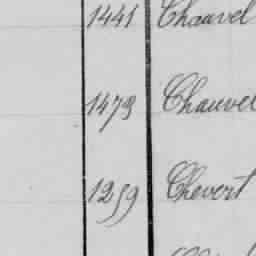 1441 Chauvel
1473 Chauvel
1259 Chevert